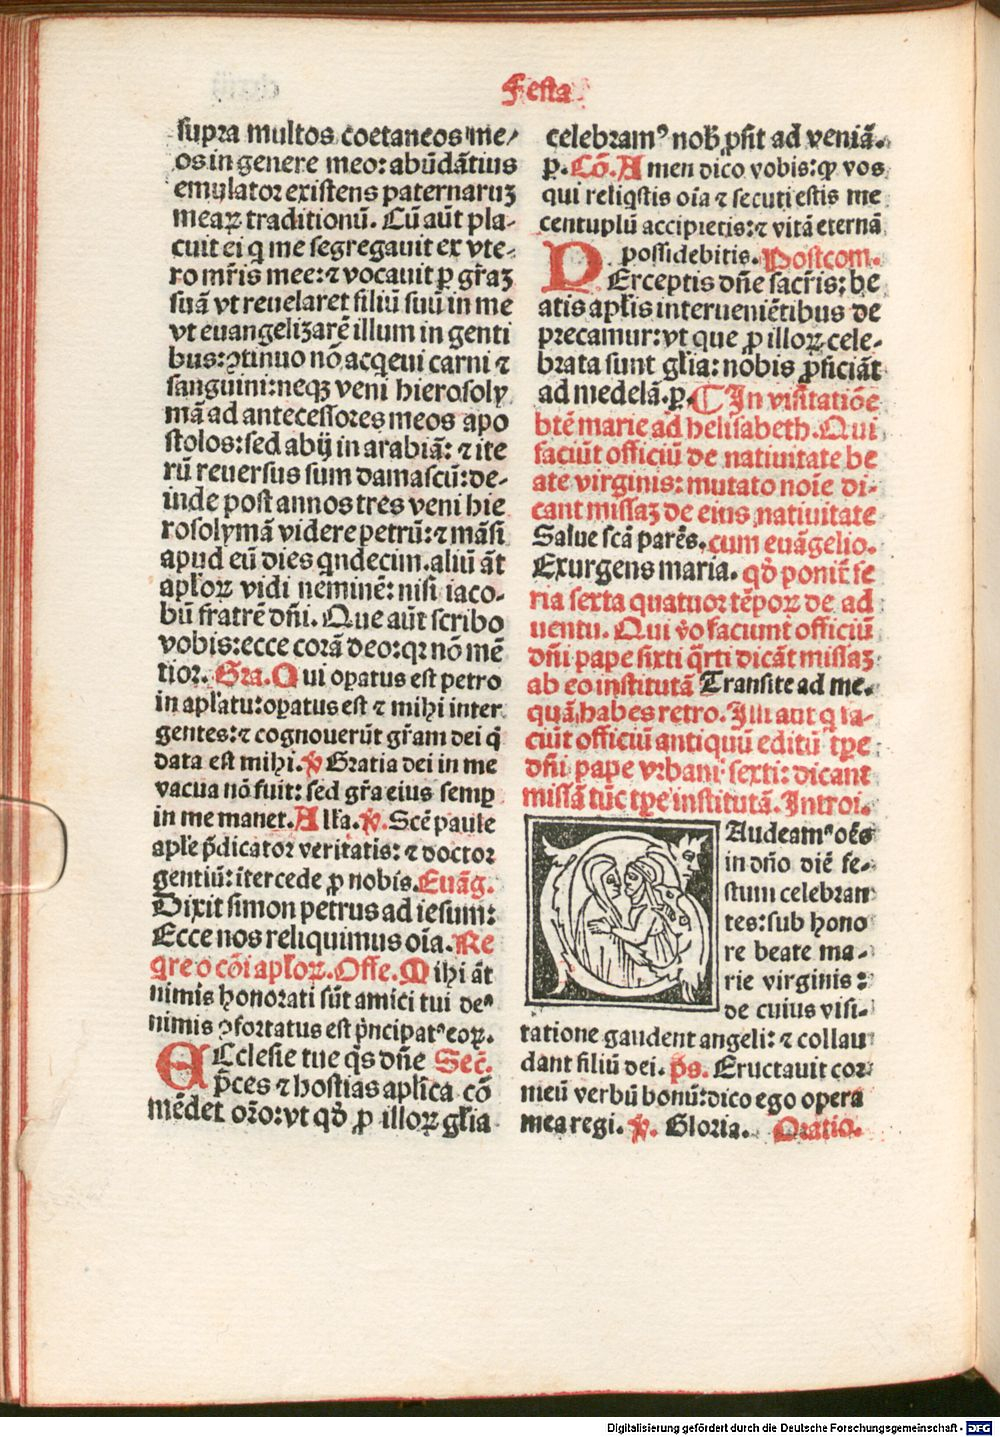 Festa
supra multos coetaneos me/
os in genere meo: abūdātius
emulator existens paternaruꝫ
mearꝝ traditionū. Cū aūt pla-
cuit ei q̄ me segregauit ex vte-
ro mr̄is mee: ⁊ vocauit ꝑ gr̄aꝫ
suā vt reuelaret filiū suū in me
vt euangelizarē illum in genti
bus: ꝯtinuo nō acq̄eui carni ⁊
sanguini: neqꝫ veni hierosoly
mā ad antecessores meos apo
stolos: sed abij in arabiā: ⁊ ite
rū reuersus sum damascū: de-
inde post annos tres veni hie
rosolymā videre petrū: ⁊ māsi
apud eū dies qndecim. aliū āt
apl'orꝝ vidi neminē: nisi iaco-
bū fratrē dn̄i. Que aūt scribo
vobis: ecce corā deo: qꝛ nō mē
tior. Gra. Qui opatus est petro
in apl'atu: oꝑatus est ⁊ mihi inter
gentes: ⁊ cognouerūt gr̄am dei q̄
data est mihi. ꝟ Gratia dei in me
vacua nō fuit: sed gr̄a eius semꝑ
in me manet. All'a. ꝟ. Scē paule
apl'e p̄dicator veritatis: ⁊ doctor
gentiū: itercede ꝓ nobis. Euāg.
Dixit simon petrus ad iesum:
Ecce nos reliquimus oīa. Re
q̄re ī cōi apl'orꝝ. Offe. Mihi āt
nimis honorati sūt amici tui deꝰ
nimis ꝯfortatus est p̄ncipatꝰ eorꝝ.
ECclesie tue q̄s dn̄e Sec̄.
p̄ces ⁊ hostias apl'ica cō
mēdet or̄o: vt qd̄ ꝓ illorꝝ gl'ia
celebramꝰ nob̄ ꝓsit ad veniā.
ꝑ. Cō. Amen dico vobis: ꝙ vos
qui reliq̄stis oīa ⁊ secuti estis me
centuplū accipietis: ⁊ vitā eternā
possidebitis. Postcom.
PErceptis dn̄e sacr̄is: be
atis apl'is interueniētibus de
precamur: vt que ꝓ illorꝝ cele-
brata sunt gl'ia: nobis ꝓficiāt
ad medelā. ꝑ. ¶ In visitatiōe
btē marie ad helisabeth. Qui
faciūt officiū de natiuitate be
ate virginis: mutato noīe di-
cant missaꝫ de eius natiuitate
Salue scā parēs. cum euāgelio.
Exurgens maria. qd̄ ponit̄ fe
ria sexta quatuor tēporꝝ de ad
uentu. Qui ꝟo faciunt officiū
dn̄i pape sixti q̄rti dicāt missaꝫ
ab eo institutā Transite ad me.
quā habes retro. Illi aut q̄ fa-
ciūt officiū antiquū editū tꝑe
dn̄i pape vrbani sexti: dicant
missā tūc tꝑe institutā. Introi.
GAudeamꝰ oēs
in dn̄o diē fe-
stum celebran
tes: sub hono
re beate ma-
rie virginis:
de cuius visi-
tatione gaudent angeli: ⁊ collau
dant filiū dei. p̄s. Eructauit cor
meū verbū bonū: dico ego opera
mea regi. ꝟ. Gloria. Oratio.
Digitalisierung gefördert durch die Deutsche Forschungsgemeinschaft - DFG